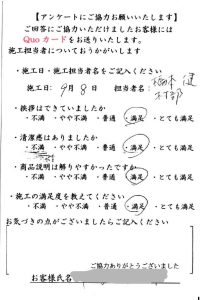 【アンケートにご協力お願いいたします】
ご回答にご協力いただけましたお客様には
Quo カードをお送りいたします。
施工担当者についておうかがいします
・施工日・施工担当者名をご記入ください
施工日 9月 8日 担当者名:
・挨拶はできていましたか
・不満 ・やや不満 ・普通 ・満足 ・とても満足
・清潔感はありましたか
・不満 ・やや不満 ・普通 ・満足 ・とても満足
・商品説明は解りやすかったですか
・不満 ・やや不満 ・普通 ・満足 ・とても満足
・施工の満足度を教えてください
・不満 ・やや不満 ・普通 ・満足 ・とても満足
お気づきの点がございましたらご記入ください
ご協力ありがとうございました
お客様氏名